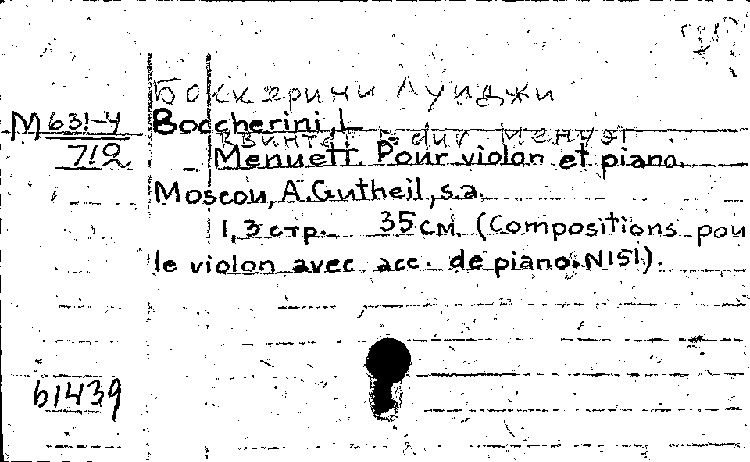 Боккерини Луиджи
M 631-4 Boccherini, L
Квинтет E dur Менуэт
712 Menuett. Pour violon et piano.
Moscou, A. Gutheil, s.a.
1, 3 стр. 35 см. (Compositions pou
le violon avec acc. de piano. N 151).
61439